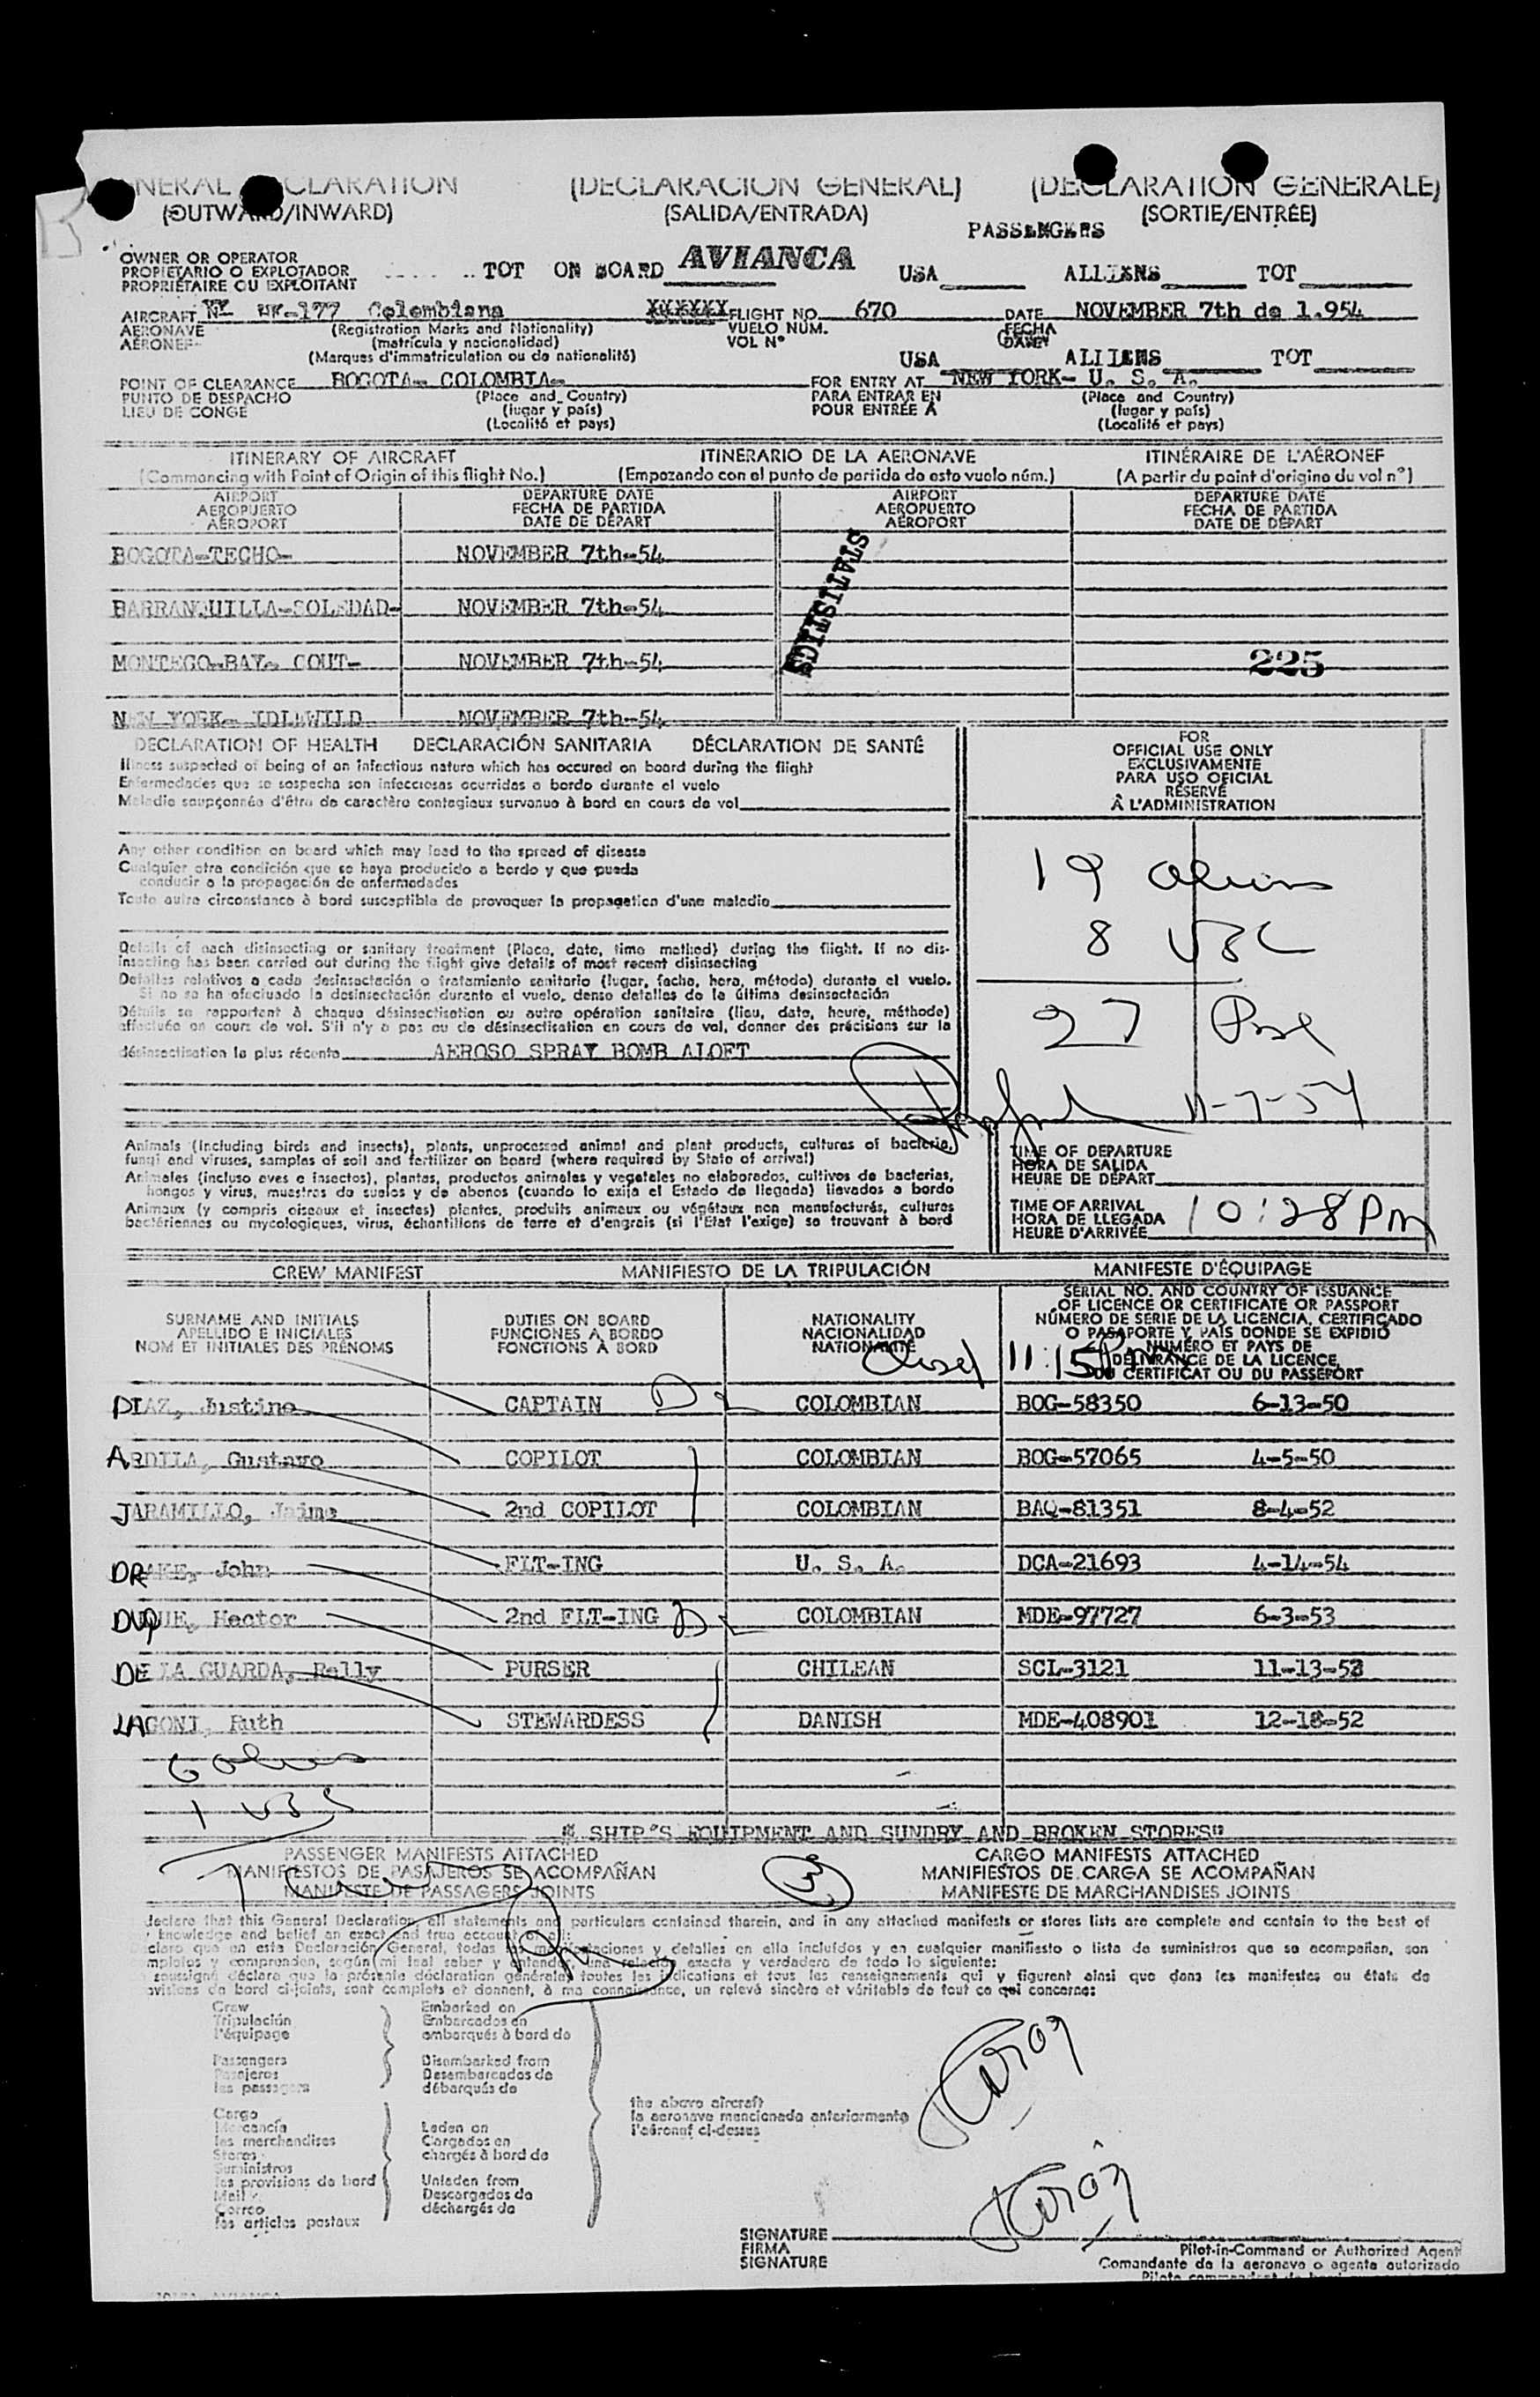 NERAL CLARATION (DECLARACION GENERAL) (DECLARATION GENERALE)
(OUTWARD/INWARD) (SALIDA/ENTRADA) (SORTIE/ENTRÉE)
PASSENGERS
OWNER OR OPERATOR
PROPIETARIO O EXPLOTADOR
PROPRIÉTAIRE OU EXPLOITANT
TOT ON BOARD AVIANCA USA ALLIENS TOT
AIRCRAFT HK-177 Colombiana XXXXXX FLIGHT NO. 670 DATE NOVEMBER 7th de 1.954
AERONAVE (Registration Marks and Nationality) VUELO NUM. FECHA
AÉRONEF (matrícula y nacionalidad) VOL N° DATE
(Marques d'immatriculation ou de nationalité)
USA ALLIENS TOT
POINT OF CLEARANCE BOGOTA- COLOMBIA- FOR ENTRY AT NEW YORK- U. S. A.
PUNTO DE DESPACHO (Place and Country) PARA ENTRAR EN (Place and Country)
LIEU DE CONGE (lugar y país) POUR ENTRÉE A (lugar y país)
(Localité et pays) (Localité et pays)
ITINERARY OF AIRCRAFT ITINERARIO DE LA AERONAVE ITINÉRAIRE DE L'AÉRONEF
(Commencing with Point of Origin of this flight No.) (Empezando con el punto de partida de este vuelo núm.) (A partir du point d'origine du vol n°)
AIRPORT DEPARTURE DATE AIRPORT DEPARTURE DATE
AEROPUERTO FECHA DE PARTIDA AEROPUERTO FECHA DE PARTIDA
AÉROPORT DATE DE DÉPART AÉROPORT DATE DE DÉPART
BOGOTA-TECHO- NOVEMBER 7th-54
STATISTICS
BARRANQUILLA-SOLEDAD- NOVEMBER 7th-54
MONTEGO-BAY- COUT- NOVEMBER 7th-54 225
NEW YORK- IDLEWILD NOVEMBER 7th-54
DECLARATION OF HEALTH DECLARACIÓN SANITARIA DÉCLARATION DE SANTÉ
Illness suspected of being of an infectious nature which has occured on board during the flight
Enfermedades que se sospecha son infecciosas ocurridas a bordo durante el vuelo
Maladie soupçonnée d'être de caractère contagieux survenue à bord en cours de vol
FOR
OFFICIAL USE ONLY
EXCLUSIVAMENTE
PARA USO OFICIAL
RÉSERVÉ
À L'ADMINISTRATION
Any other condition on board which may lead to the spread of disease
Cualquier otra condición que se haya producido a bordo y que pueda
conducir a la propagación de enfermedades
Toute autre circonstance à bord susceptible de provoquer la propagation d'une maladie
19 aliens
8 USC
27
Details of each disinsecting or sanitary treatment (Place, date, time method) during the flight. If no dis-
insecting has been carried out during the flight give details of most recent disinsecting
Detalles relativos a cada desinsectación o tratamiento sanitario (lugar, fecha, hora, método) durante el vuelo.
Si no se ha efectuado la desinsectación durante el vuelo, dense detalles de la última desinsectación
Détails se rapportant à chaque désinsectisation ou autre opération sanitaire (lieu, date, heure, méthode)
effectuée en cours de vol. S'il n'y a pas eu de désinsectisation en cours de vol, donner des précisions sur la
désinsectisation la plus récente AEROSO SPRAY BOMB ALOFT
11-7-54
Animals (including birds and insects), plants, unprocessed animal and plant products, cultures of bacteria,
fungi and viruses, samples of soil and fertilizer on board (where required by State of arrival)
Animales (incluso aves e insectos), plantas, productos animales y vegetales no elaborados, cultivos de bacterias,
hongos y virus, muestras de suelos y de abonos (cuando lo exija el Estado de llegada) llevados a bordo
Animaux (y compris oiseaux et insectes) plantes, produits animaux ou végétaux non manufacturés, cultures
bactériennes ou mycologiques, virus, échantillons de terre et d'engrais (si l'Etat l'exige) se trouvant à bord
TIME OF DEPARTURE
HORA DE SALIDA
HEURE DE DÉPART
TIME OF ARRIVAL
HORA DE LLEGADA
HEURE D'ARRIVÉE
10:28 PM
CREW MANIFEST MANIFIESTO DE LA TRIPULACIÓN MANIFESTE D'ÉQUIPAGE
SURNAME AND INITIALS
APELLIDO E INICIALES
NOM ET INITIALES DES PRÉNOMS
DUTIES ON BOARD
FUNCIONES A BORDO
FONCTIONS À BORD
NATIONALITY
NACIONALIDAD
NATIONALITÉ
SERIAL NO. AND COUNTRY OF ISSUANCE
OF LICENCE OR CERTIFICATE OR PASSPORT
NÚMERO DE SERIE DE LA LICENCIA, CERTIFICADO
O PASAPORTE Y PAÍS DONDE SE EXPIDIÓ
NUMÉRO ET PAYS DE
DÉLIVRANCE DE LA LICENCE,
DU CERTIFICAT OU DU PASSEPORT
11:15 Pm
DIAZ, Justino CAPTAIN COLOMBIAN BOG-58350 6-13-50
ARDILA, Gustavo COPILOT COLOMBIAN BOG-57065 4-5-50
JARAMILLO, Jaime 2nd COPILOT COLOMBIAN BAQ-81351 8-4-52
DRAKE, John FLT-ING U. S. A. DCA-21693 4-14-54
DUQUE, Hector 2nd FLT-ING COLOMBIAN MDE-97727 6-3-53
DE LA GUARDA, Relly PURSER CHILEAN SCL-3121 11-13-52
LAGONI, Ruth STEWARDESS DANISH MDE-408901 12-18-52
6 aliens
1 USC
" SHIP"S EQUIPMENT AND SUNDRY AND BROKEN STORES"
PASSENGER MANIFESTS ATTACHED CARGO MANIFESTS ATTACHED
MANIFIESTOS DE PASAJEROS SE ACOMPAÑAN MANIFIESTOS DE CARGA SE ACOMPAÑAN
MANIFESTE DE PASSAGERS JOINTS MANIFESTE DE MARCHANDISES JOINTS
7
3
declare that this General Declaration, all statements and particulars contained therein, and in any attached manifests or stores lists are complete and contain to the best of
knowledge and belief an exact and true account of all:
declaro que en esta Declaración General, todas las manifestaciones y detalles en ella incluídos y en cualquier manifiesto o lista de suministros que se acompañan, son
mpletos y comprenden, según mi leal saber y entender, una relación exacta y verdadera de todo lo siguiente:
soussigné déclare que la présente déclaration générale, toutes les indications et tous les renseignements qui y figurent ainsi que dans les manifestes ou états de
ovisions de bord ci-joints, sont complets et donnent, à ma connaissance, un relevé sincère et véritable de tout ce qui concerne:
Crew
Tripulación
l'équipage
Embarked on
Embarcados en
embarqués à bord de
Passengers
Pasajeros
les passagers
Disembarked from
Desembarcados de
débarqués de
the above aircraft
la aeronave mencionada anteriormente
l'aéronef ci-dessus
Cargo
Mercancía
les merchandises
Stores
Suministros
les provisions de bord
Mail
Correo
les articles postaux
Laden on
Cargados en
chargés à bord de
Unladen from
Descargados de
déchargés de
SIGNATURE
FIRMA
SIGNATURE
Pilot-in-Command or Authorized Agent
Comandante de la aeronave o agente autorizado